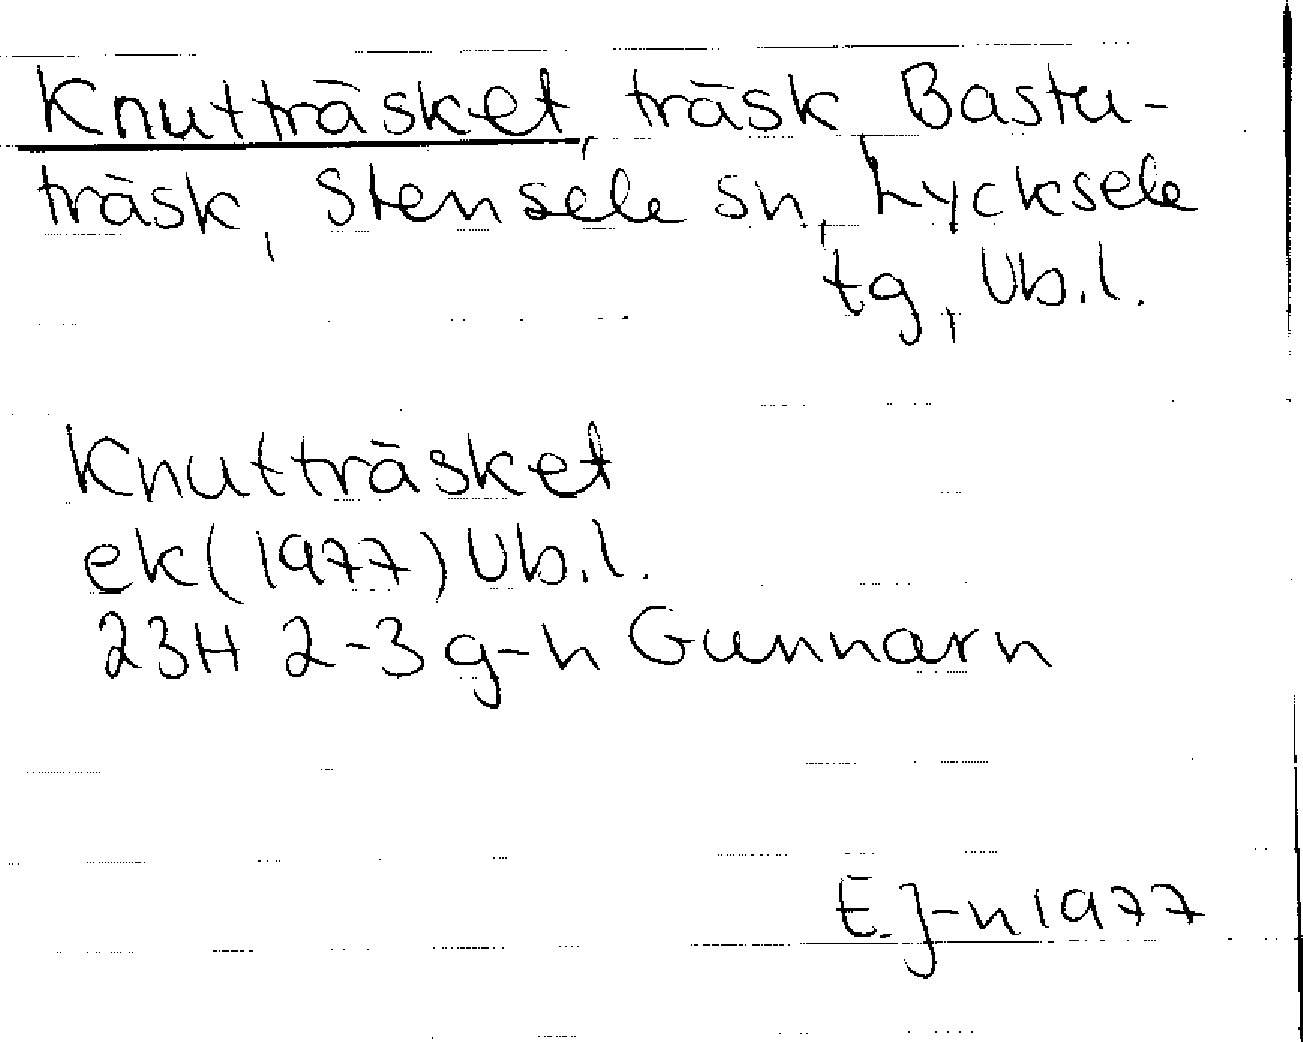 Knutträsket, träsk Bastu-
träsk, Stensele sn, Lycksele
tg, Vb.l.
Knutträsket
ek (1977) Vb.l.
23H 2-3 g-h Gunnarn
E. J-n 1977